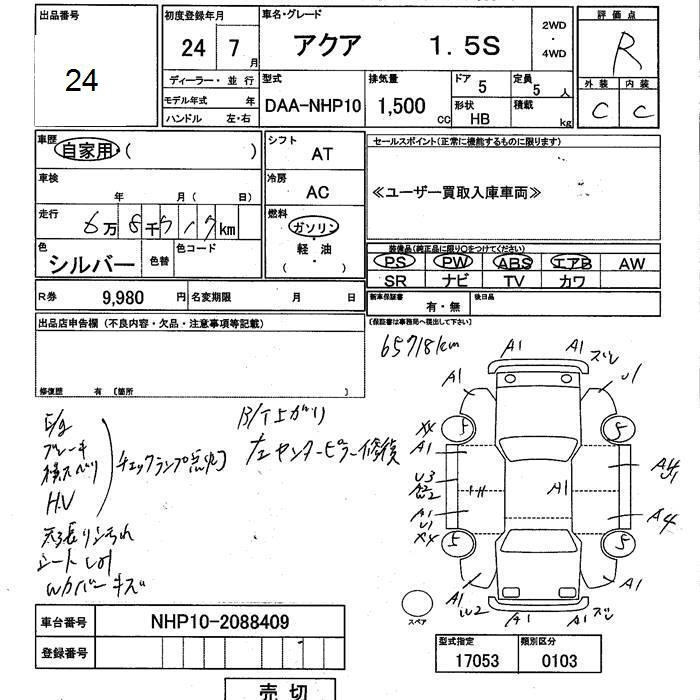 出品番号
24
初度登録年月
24 7 月
車名・グレード
アクア 1.5S
2WD
・
4WD
評価点
R
外装 内装
C C
ディーラー・並行
モデル年式 年
ハンドル 左・右
型式
DAA-NHP10
排気量
1,500 cc
ドア 5
定員 5 人
形状 HB
積載 kg
車歴
自家用・( )
シフト
AT
セールスポイント(正常に機能するものに限ります)
≪ユーザー買取入庫車両≫
車検
年 月( 日)
冷房
AC
走行
6万 km
燃料
ガソリン
・
軽・油
( )
色
シルバー
色替
色コード
装備品(純正品に限り○をつけてください)
PS PW ABS エアB AW
SR ナビ TV カワ
R券 9,980 円
名変期限 月 日
新車保証書
有・無
後日品
(保証書は事務局へ提出して下さい)
出品店申告欄(不良内容・欠品・注意事項等記載)
修復歴 有 〔箇所 〕
65718km
A1 A1 ズレ
A1 U1
E/g
ブレーキ
横スベリ
H.V
チェックランプ点灯
左センターピラー修復
XX 5 5
A1
U3
A2
W2
A1
A4
U1
A1
U1
A4
XX 5 5
シート
A1 W2 A1 A1 ズレ A1
スペア
車台番号 NHP10-2088409
登録番号
型式指定 類別区分
17053 0103
売切